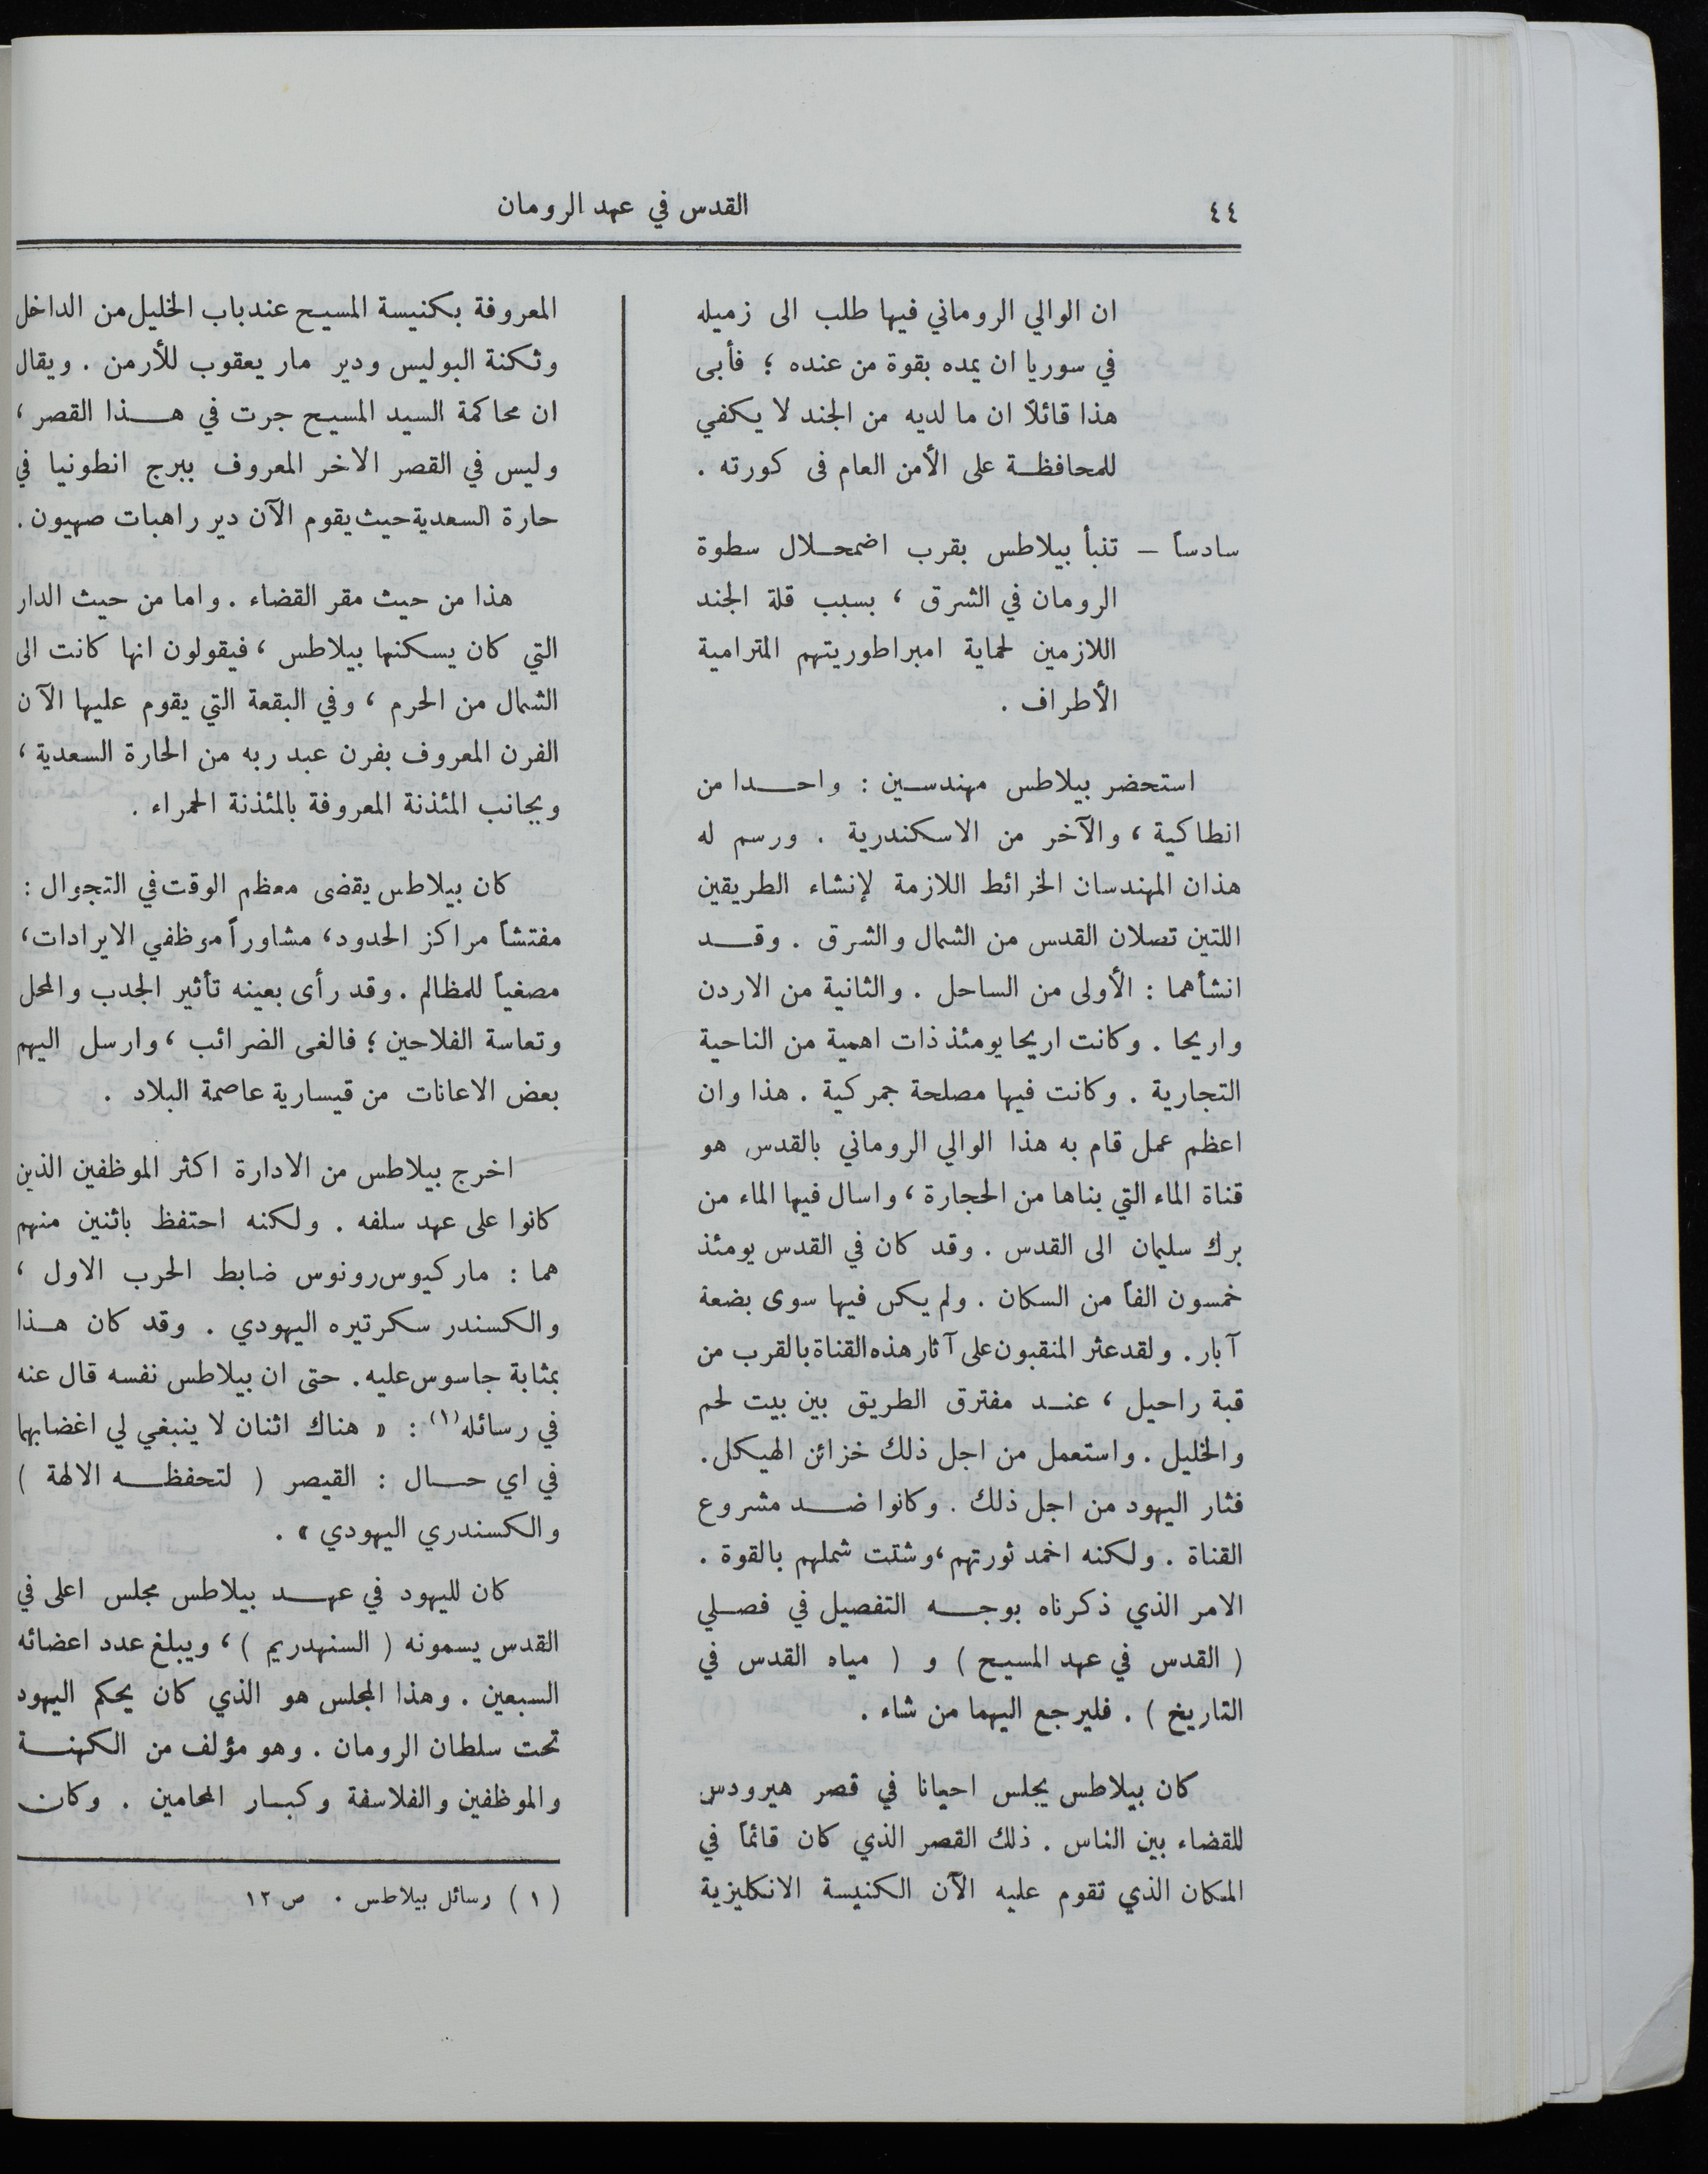 ٤٤
القدس في عهد الرومان
ان الوالي الروماني فيها طلب الى زميله
في سوريا ان يمده بقوة من عنده ؛ فأبى
هذا قائلاً ان ما لديه من الجند لا يكفي
للمحافظة على الأمن العام فى كورته .
سادساً – تنبأ بيلاطس بقرب اضمحلال سطوة
الرومان في الشرق ، بسبب قلة الجند
اللازمين لحماية امبراطوريتهم المترامية
الأطراف .
استحضر بيلاطس مهندسين : واحدا من
انطاكية ، والآخر من الاسكندرية . ورسم له
هذان المهندسان الخرائط اللازمة لإنشاء الطريقين
اللتين تصلان القدس من الشمال والشرق . وقد
انشأهما : الأولى من الساحل . والثانية من الاردن
واريحا . وكانت اريحا يومئذ ذات اهمية من الناحية
التجارية . وكانت فيها مصلحة جمركية . هذا وان
اعظم عمل قام به هذا الوالي الروماني بالقدس هو
قناة الماء التي بناها من الحجارة ، واسال فيها الماء من
برك سليمان الى القدس . وقد كان في القدس يومئذ
خمسون الفاً من السكان . ولم يكن فيها سوى بضعة
آبار . ولقد عثر المنقبون على آثار هذه القناة بالقرب من
قبة راحيل ، عند مفترق الطريق بين بيت لحم
والخليل . واستعمل من اجل ذلك خزائن الهيكل .
فثار اليهود من اجل ذلك . وكانوا ضد مشروع
القناة . ولكنه اخمد ثورتهم ، وشتت شملهم بالقوة .
الامر الذي ذكرناه بوجه التفصيل في فصلي
( القدس في عهد المسيح ) و ( مياه القدس في
التاريخ ) . فليرجع اليهما من شاء .
كان بيلاطس يجلس احيانا في قصر هيرودس
للقضاء بين الناس . ذلك القصر الذي كان قائماً في
المكان الذي تقوم عليه الآن الكنيسة الانكليزية
المعروفة بكنيسة المسيح عند باب الخليل من الداخل
وثكنة البوليس ودير مار يعقوب للأرمن . ويقال
ان محاكمة السيد المسيح جرت في هذا القصر ،
وليس في القصر الاخر المعروف ببرج انطونيا في
حارة السعدية حيث يقوم الآن دير راهبات صهيون .
هذا من حيث مقر القضاء . واما من حيث الدار
التي كان يسكنها بيلاطس ، فيقولون انها كانت الى
الشمال من الحرم ، وفي البقعة التي يقوم عليها الآن
الفرن المعروف بفرن عبد ربه من الحارة السعدية ،
وبجانب المئذنة المعروفة بالمئذنة الحمراء .
كان بيلاطس يقضى معظم الوقت في التجوال :
مفتشاً مراكز الحدود ، مشاوراً موظفي الايرادات ،
مصغياً للمظالم . وقد رأى بعينه تأثير الجدب والمحل
وتعاسة الفلاحين ؛ فالغى الضرائب ، وارسل اليهم
بعض الاعانات من قيسارية عاصمة البلاد .
اخرج بيلاطس من الادارة اكثر الموظفين الذين
كانوا على عهد سلفه . ولكنه احتفظ باثنين منهم
هما : ماركيوس رونوس ضابط الحرب الاول ،
والكسندر سكرتيره اليهودي . وقد كان هذا
بمثابة جاسوس عليه . حتى ان بيلاطس نفسه قال عنه
في رسائله (١) : « هناك اثنان لا ينبغي لي اغضابهما
في اي حال : القيصر ( لتحفظه الالهة )
والكسندري اليهودي » .
كان لليهود في عهد بيلاطس مجلس اعلى في
القدس يسمونه ( السنهدريم ) ، ويبلغ عدد اعضائه
السبعين . وهذا المجلس هو الذي كان يحكم اليهود
تحت سلطان الرومان . وهو مؤلف من الكهنة
والموظفين والفلاسفة وكبار المحامين . وكان
( ١ ) رسائل بيلاطس . ص ١٢